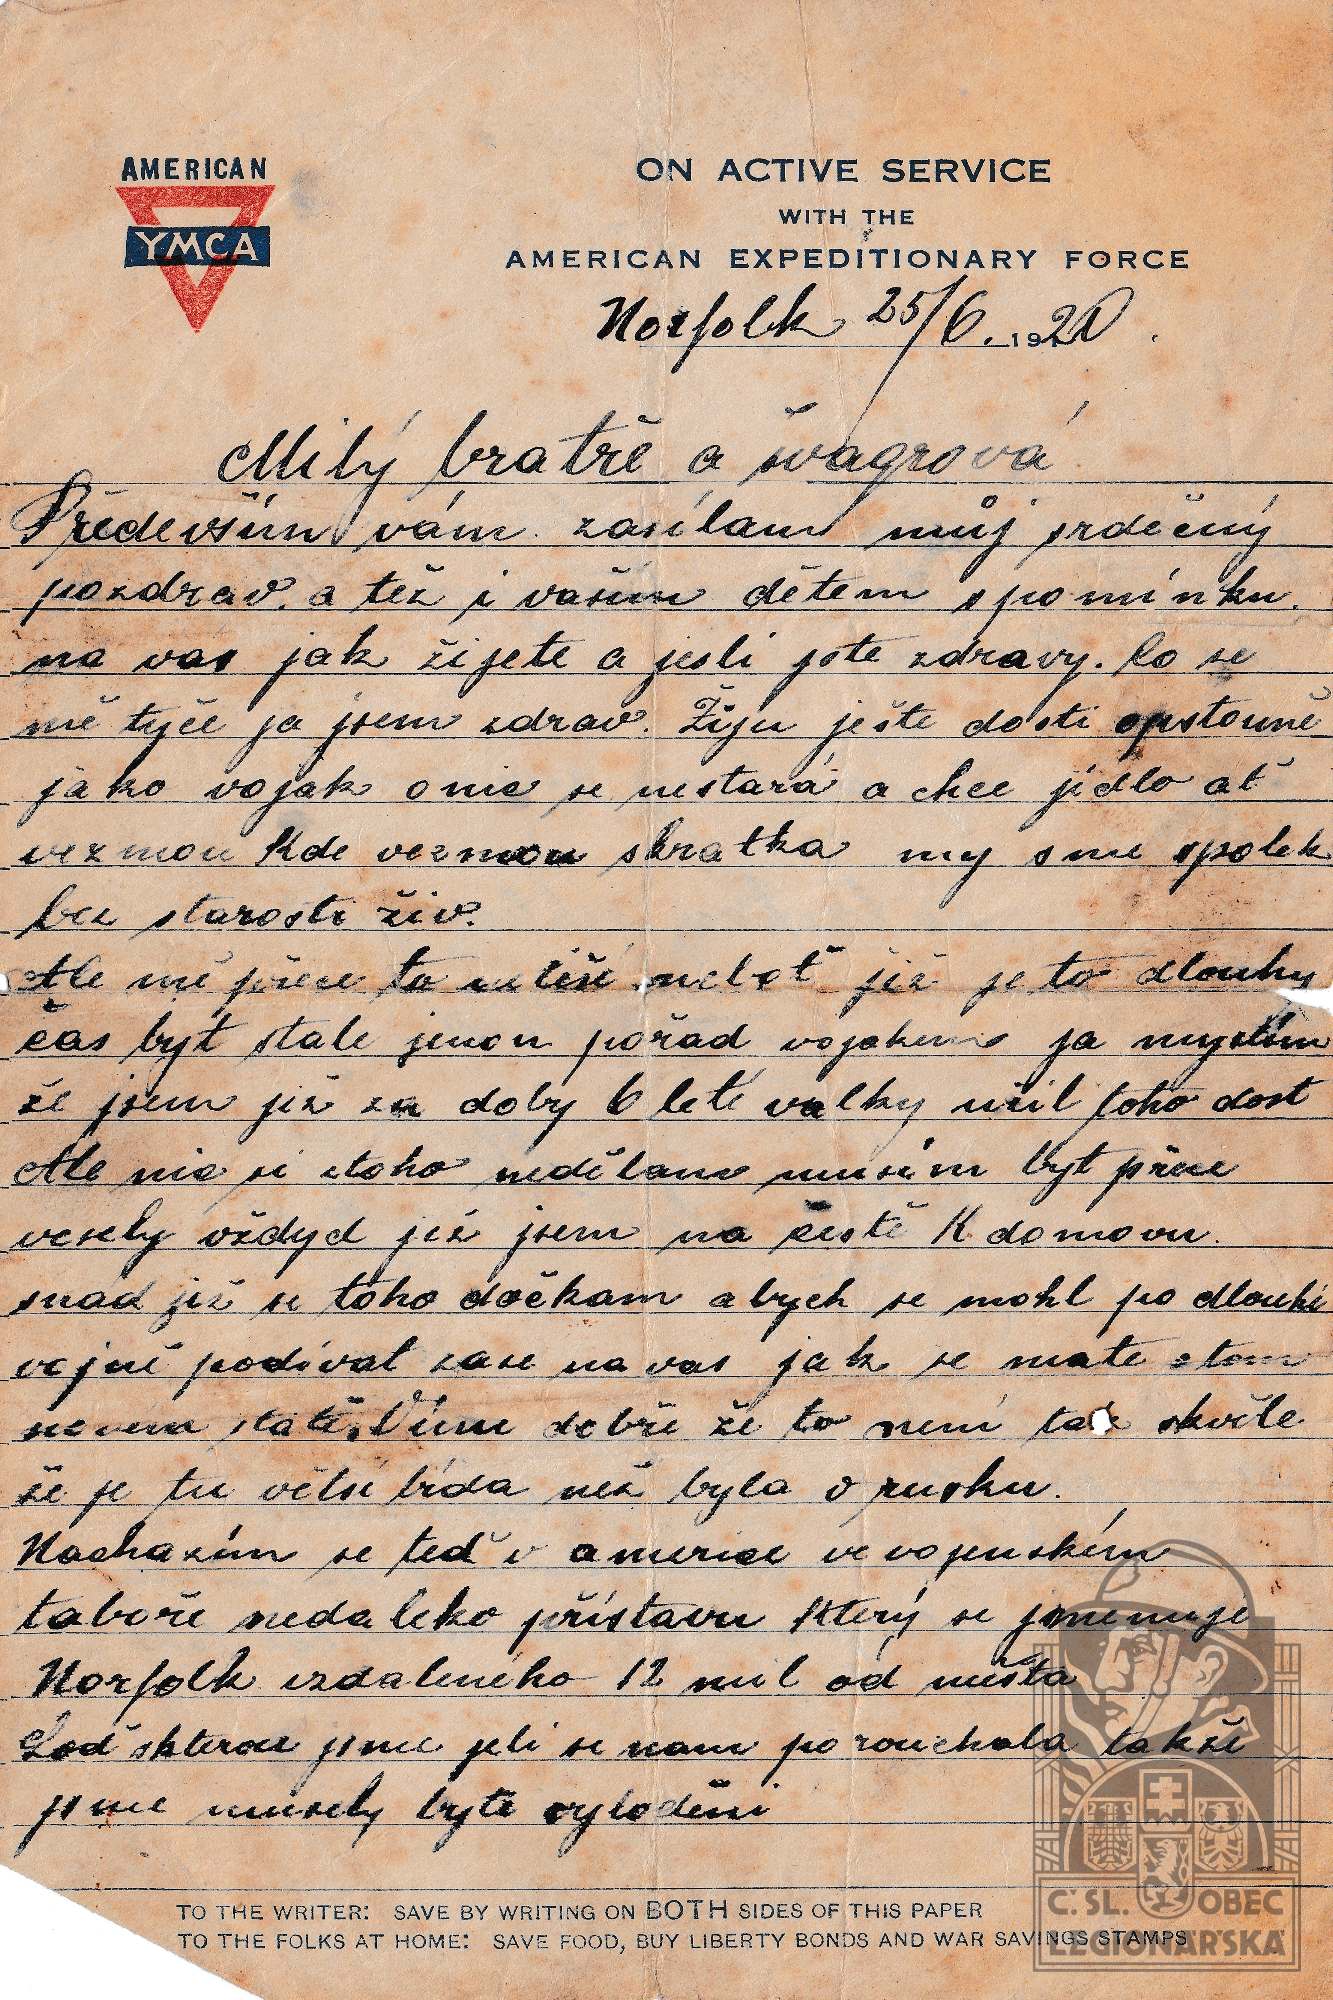 AMERICAN
YMCA
ON ACTIVE SERVICE
WITH THE
AMERICAN EXPEDITIONARY FORCE
Norfolk 25/6. 1920.
Milý bratře a švagrová
Především vám zasílam můj srdečný
pozdrav. a též i vašim dětem spomínku.
na vas jak žijete a jesli jste zdravy. Co se
mě tyče ja jsem zdrav. Žiju ješte dosti
jako vojak o nic se nestará a chce jídlo ať
vezmou kde vezmou skratka my sme spolek
bez starosti živ.
Ale mě přece to netěší neboť již je to dlouhy
čas byt stale jenom pořad vojakem ja myslim
že jsem již za doby 6 leté valky užil toho dost
Ale nic si stoho nedělam musim byt přece
vesely vždyd již jsem na cestě K domovu.
snad již se toho dočkam abych se mohl po dlouhé
vojně podívat zase na vas jak se mate otom
Vím dobře že to není tak skvěle
že je tu větsí bída než byla v rusku.
Nachazím se teď v americe ve vojenském
taboře nedaleko přístavu Který se jmenuje
Norfolk vzdaleného 12 mil od města
Loď skterou jsme jeli se nam porouchala takže
jsme musely byti vyloděni
TO THE WRITER: SAVE BY WRITING ON BOTH SIDES OF THIS PAPER
TO THE FOLKS AT HOME: SAVE FOOD, BUY LIBERTY BONDS AND WAR SAVINGS STAMPS
Č. SL. OBEC
LEGIONÁŘSKÁ